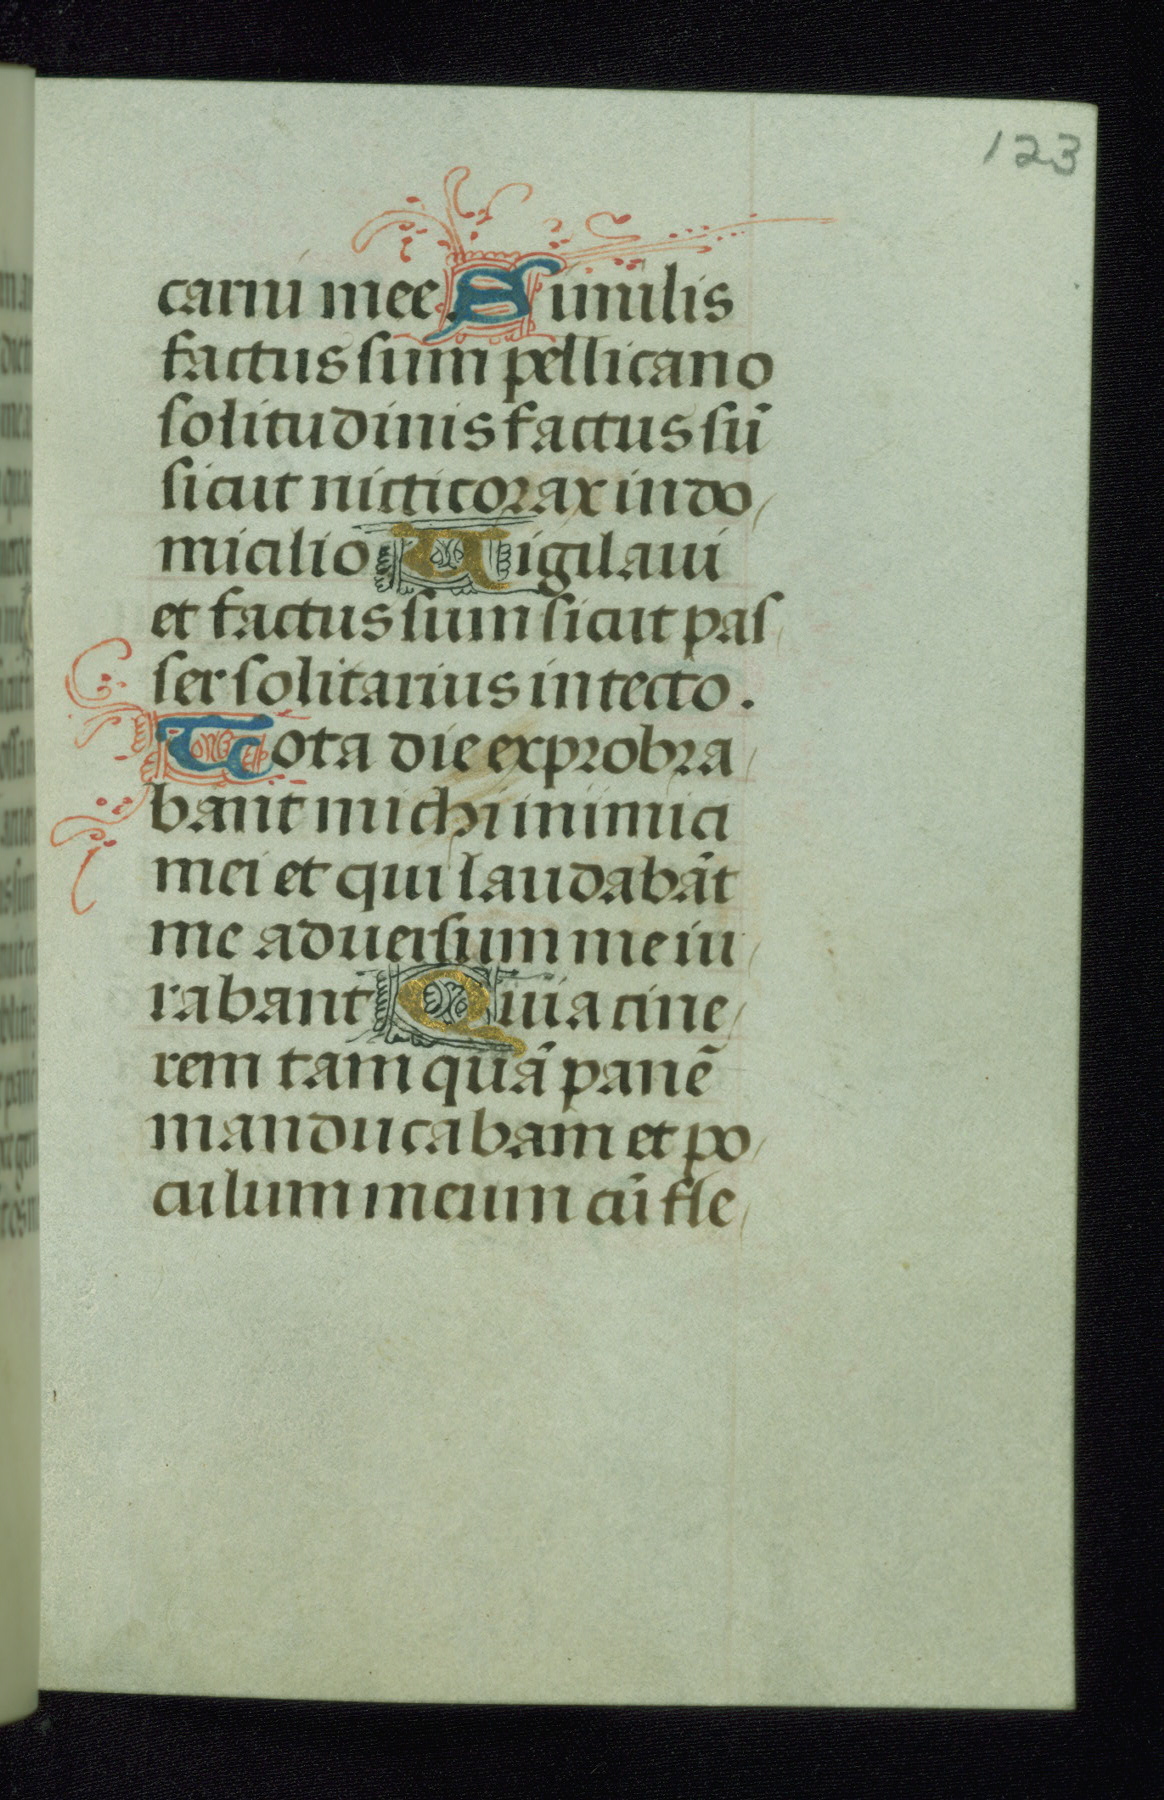 123
carni mee. Similis
factus sum pellicano
solitudinis factus sũ
sicut nicticorax in do
micilio Uigilaui
et factus sum sicut pas
ser solitarius in tecto.
Tota die exprobra
bant michi inimici
mei et qui laudabãt
me aduersum me iu
rabant Quia cine
rem tam quã panẽ
manducabam et po
culum meum cũ fle